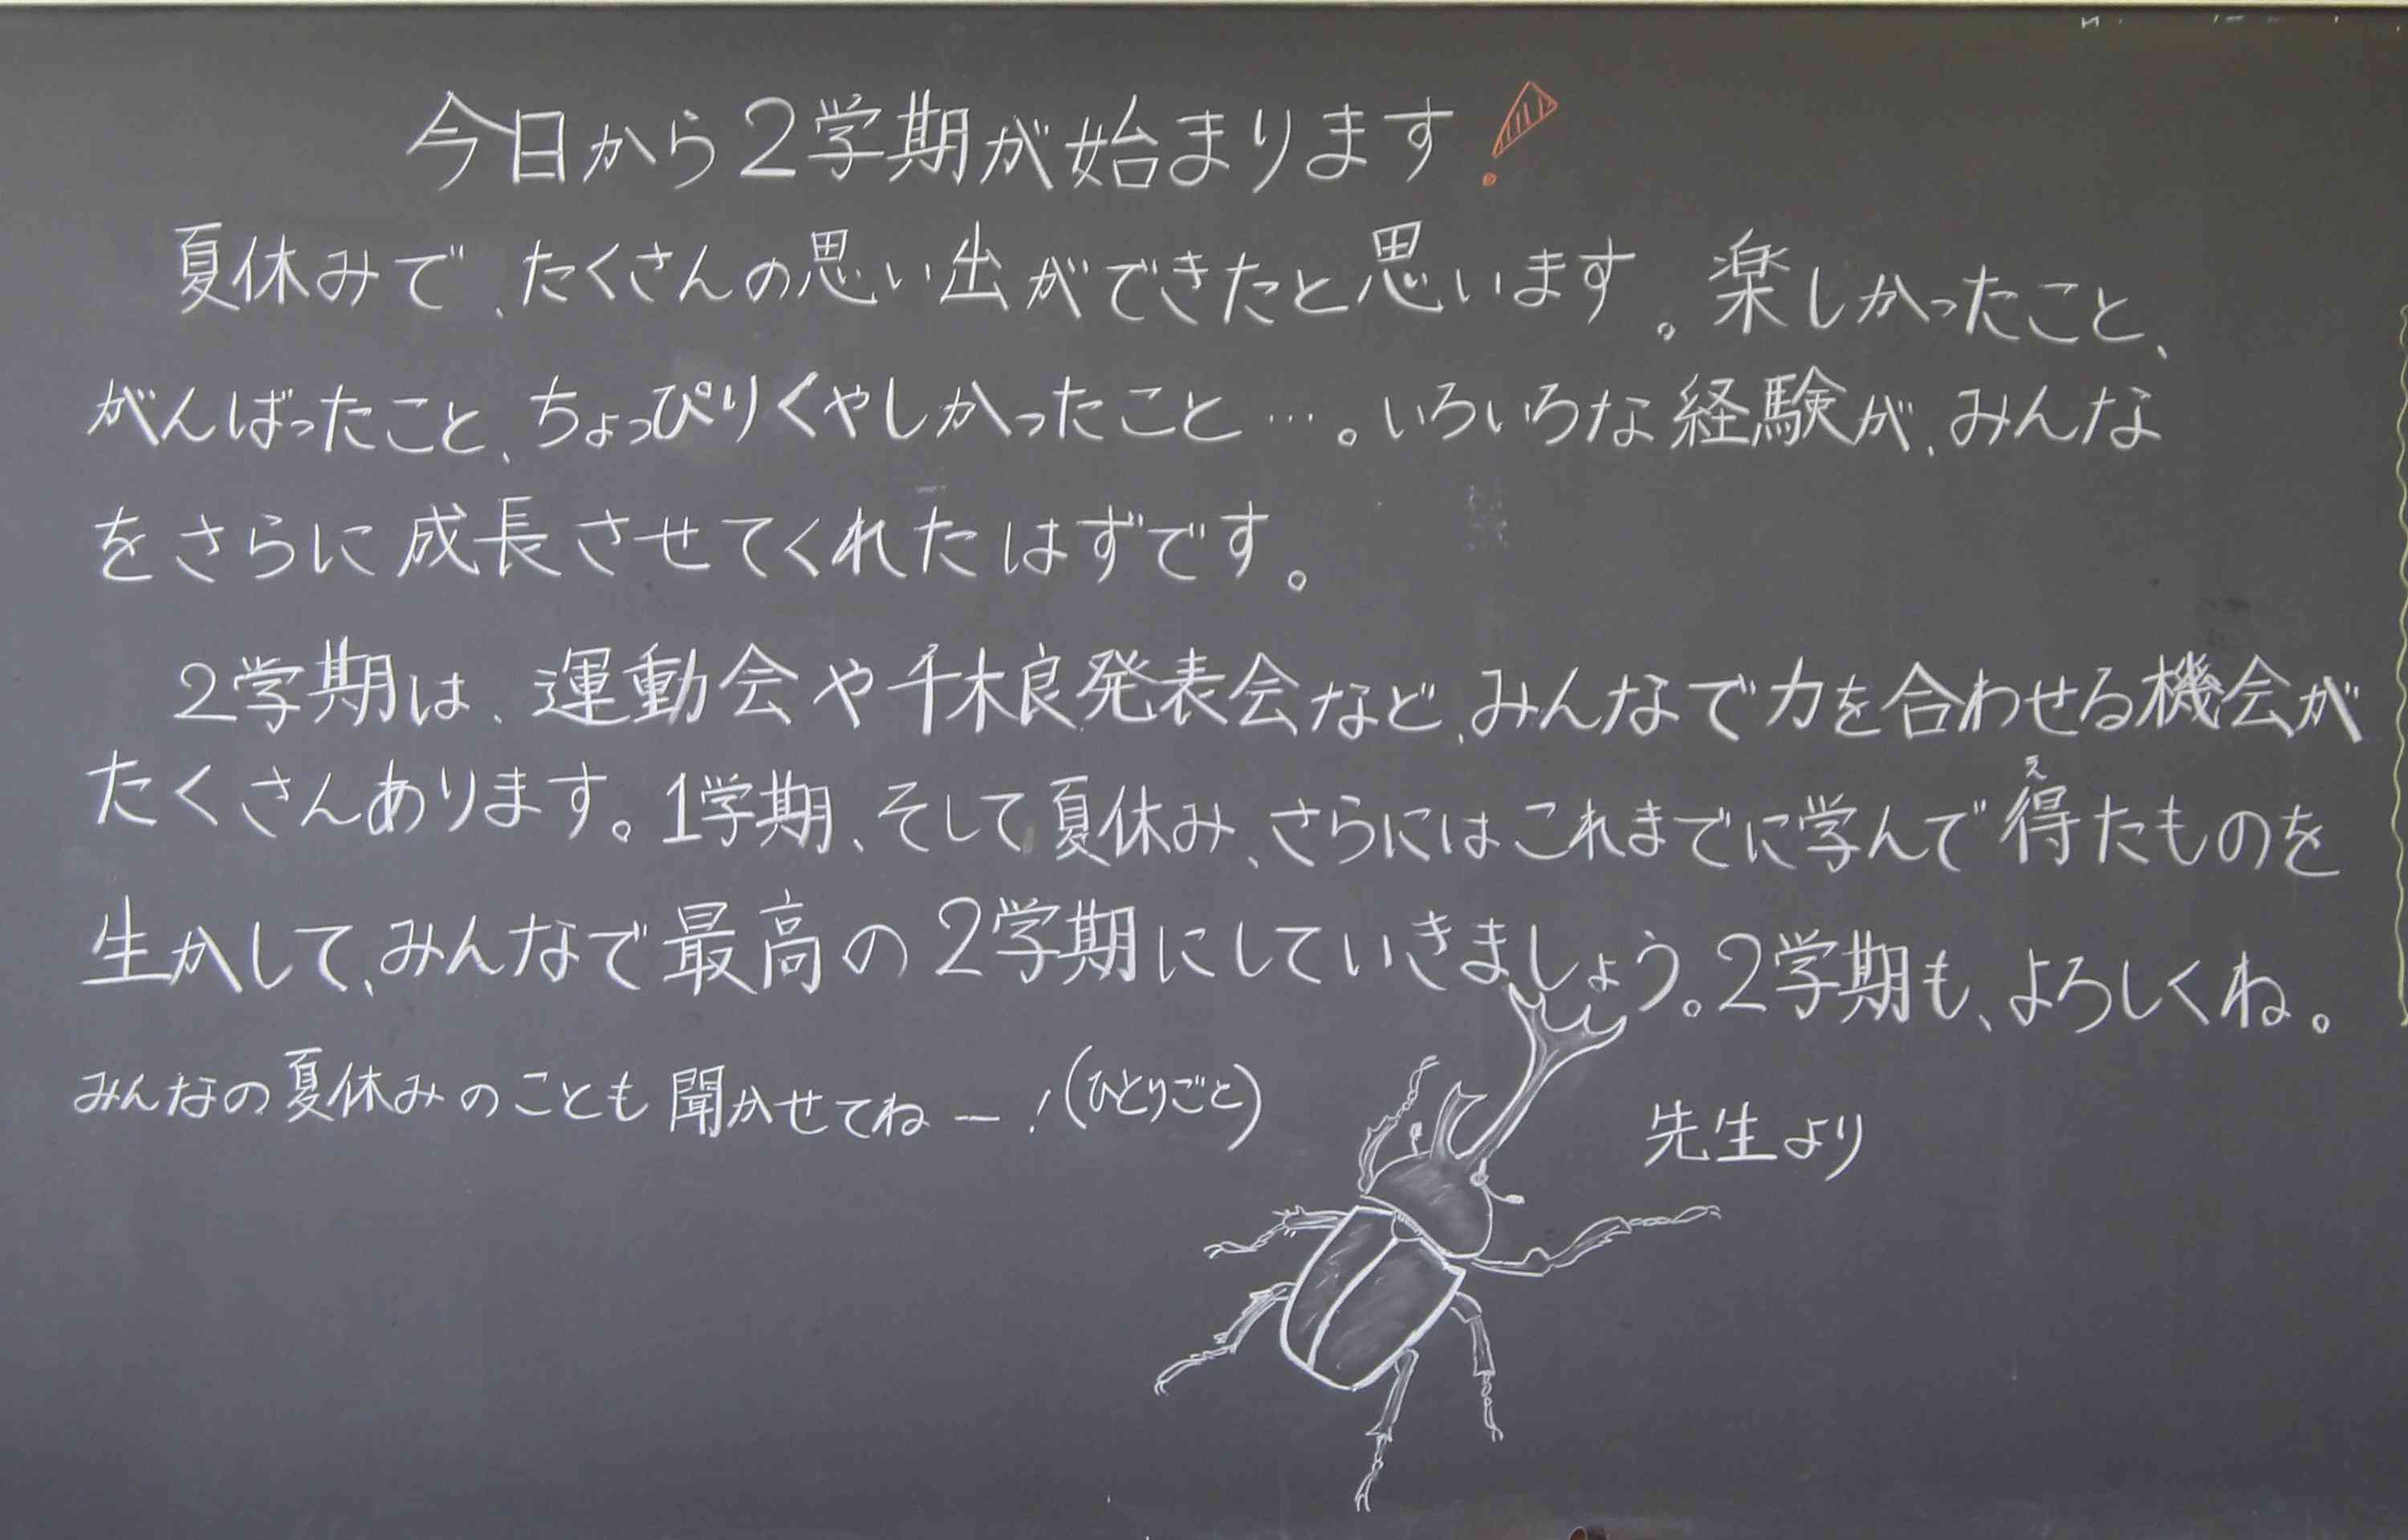 今日から2学期が始まります!
夏休みで、たくさんの思い出ができたと思います。楽しかったこと、
がんばったこと、ちょっぴりくやしかったこと…。いろいろな経験が、みんな
をさらに成長させてくれたはずです。
2学期は、運動会や千木良発表会など、みんなで力を合わせる機会が
え
たくさんあります。1学期、そして夏休み、さらにはこれまでに学んで得たものを
生かして、みんなで最高の2学期にしていきましょう。2学期も、よろしくね。
みんなの夏休みのことも聞かせてねー!(ひとりごと)
先生より